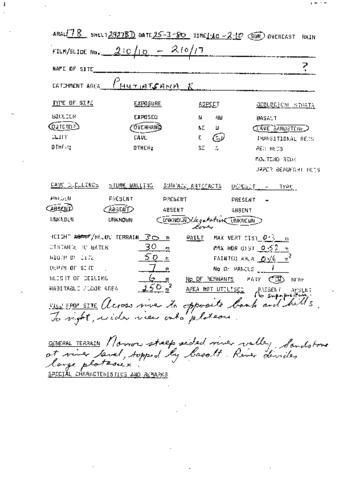 ARAL 178 SHEET 2927BD DATE 25-3-80 TIME 1.40-2.10 SUN OVERCAST RAIN
FILM/SLIDE No. 210/10 - 210/17
NAME OF SITE ?
CATCHMENT AREA PHUTIATSANA R
TYPE OF SITE EXPOSURE ASPECT GEOLOGICAL STRATA
BOULDER EXPOSED N NW BASALT
OUTCROP OVERHANG NE W CAVE SANDSTONE
CLIFF CAVE E SW TRANSITIONAL BEDS
OTHER: OTHER: SE S RED BEDS
MOLTENO BEDS
UPPER BEAUFORT BEDS
CAVE DWELLINGS STONE WALLING SURFACE ARTEFACTS DEPOSIT - TYPE
PRESENT PRESENT PRESENT PRESENT -
ABSENT ABSENT ABSENT ABSENT
UNKNOWN UNKNOWN UNKNOWN Vegetation cover UNKNOWN
HEIGHT /BELOW TERRAIN 30 m PAINT MAX VERT DIST 0.3 m
DISTANCE TO WATER 30 m MAX HOR DIST 0.52 m
WIDTH OF SITE 50 m PAINTED AREA 0.16 m²
DEPTH OF SITE 7 m No OF PANELS 1
HEIGHT OF CEILING 6 m No OF REMNANTS MANY FEW NONE
HABITABLE FLOOR AREA 250 m² AREA NOT UTILISED PRESENT ABSENT
VIEW FROM SITE Across river to opposite bank and hills.
To right, wider view onto plateau.
GENERAL TERRAIN Narrow steep sided river valley. Sandstone
at river level, topped by basalt. River divides
large plateaux.
SPECIAL CHARACTERISTICS AND REMARKS